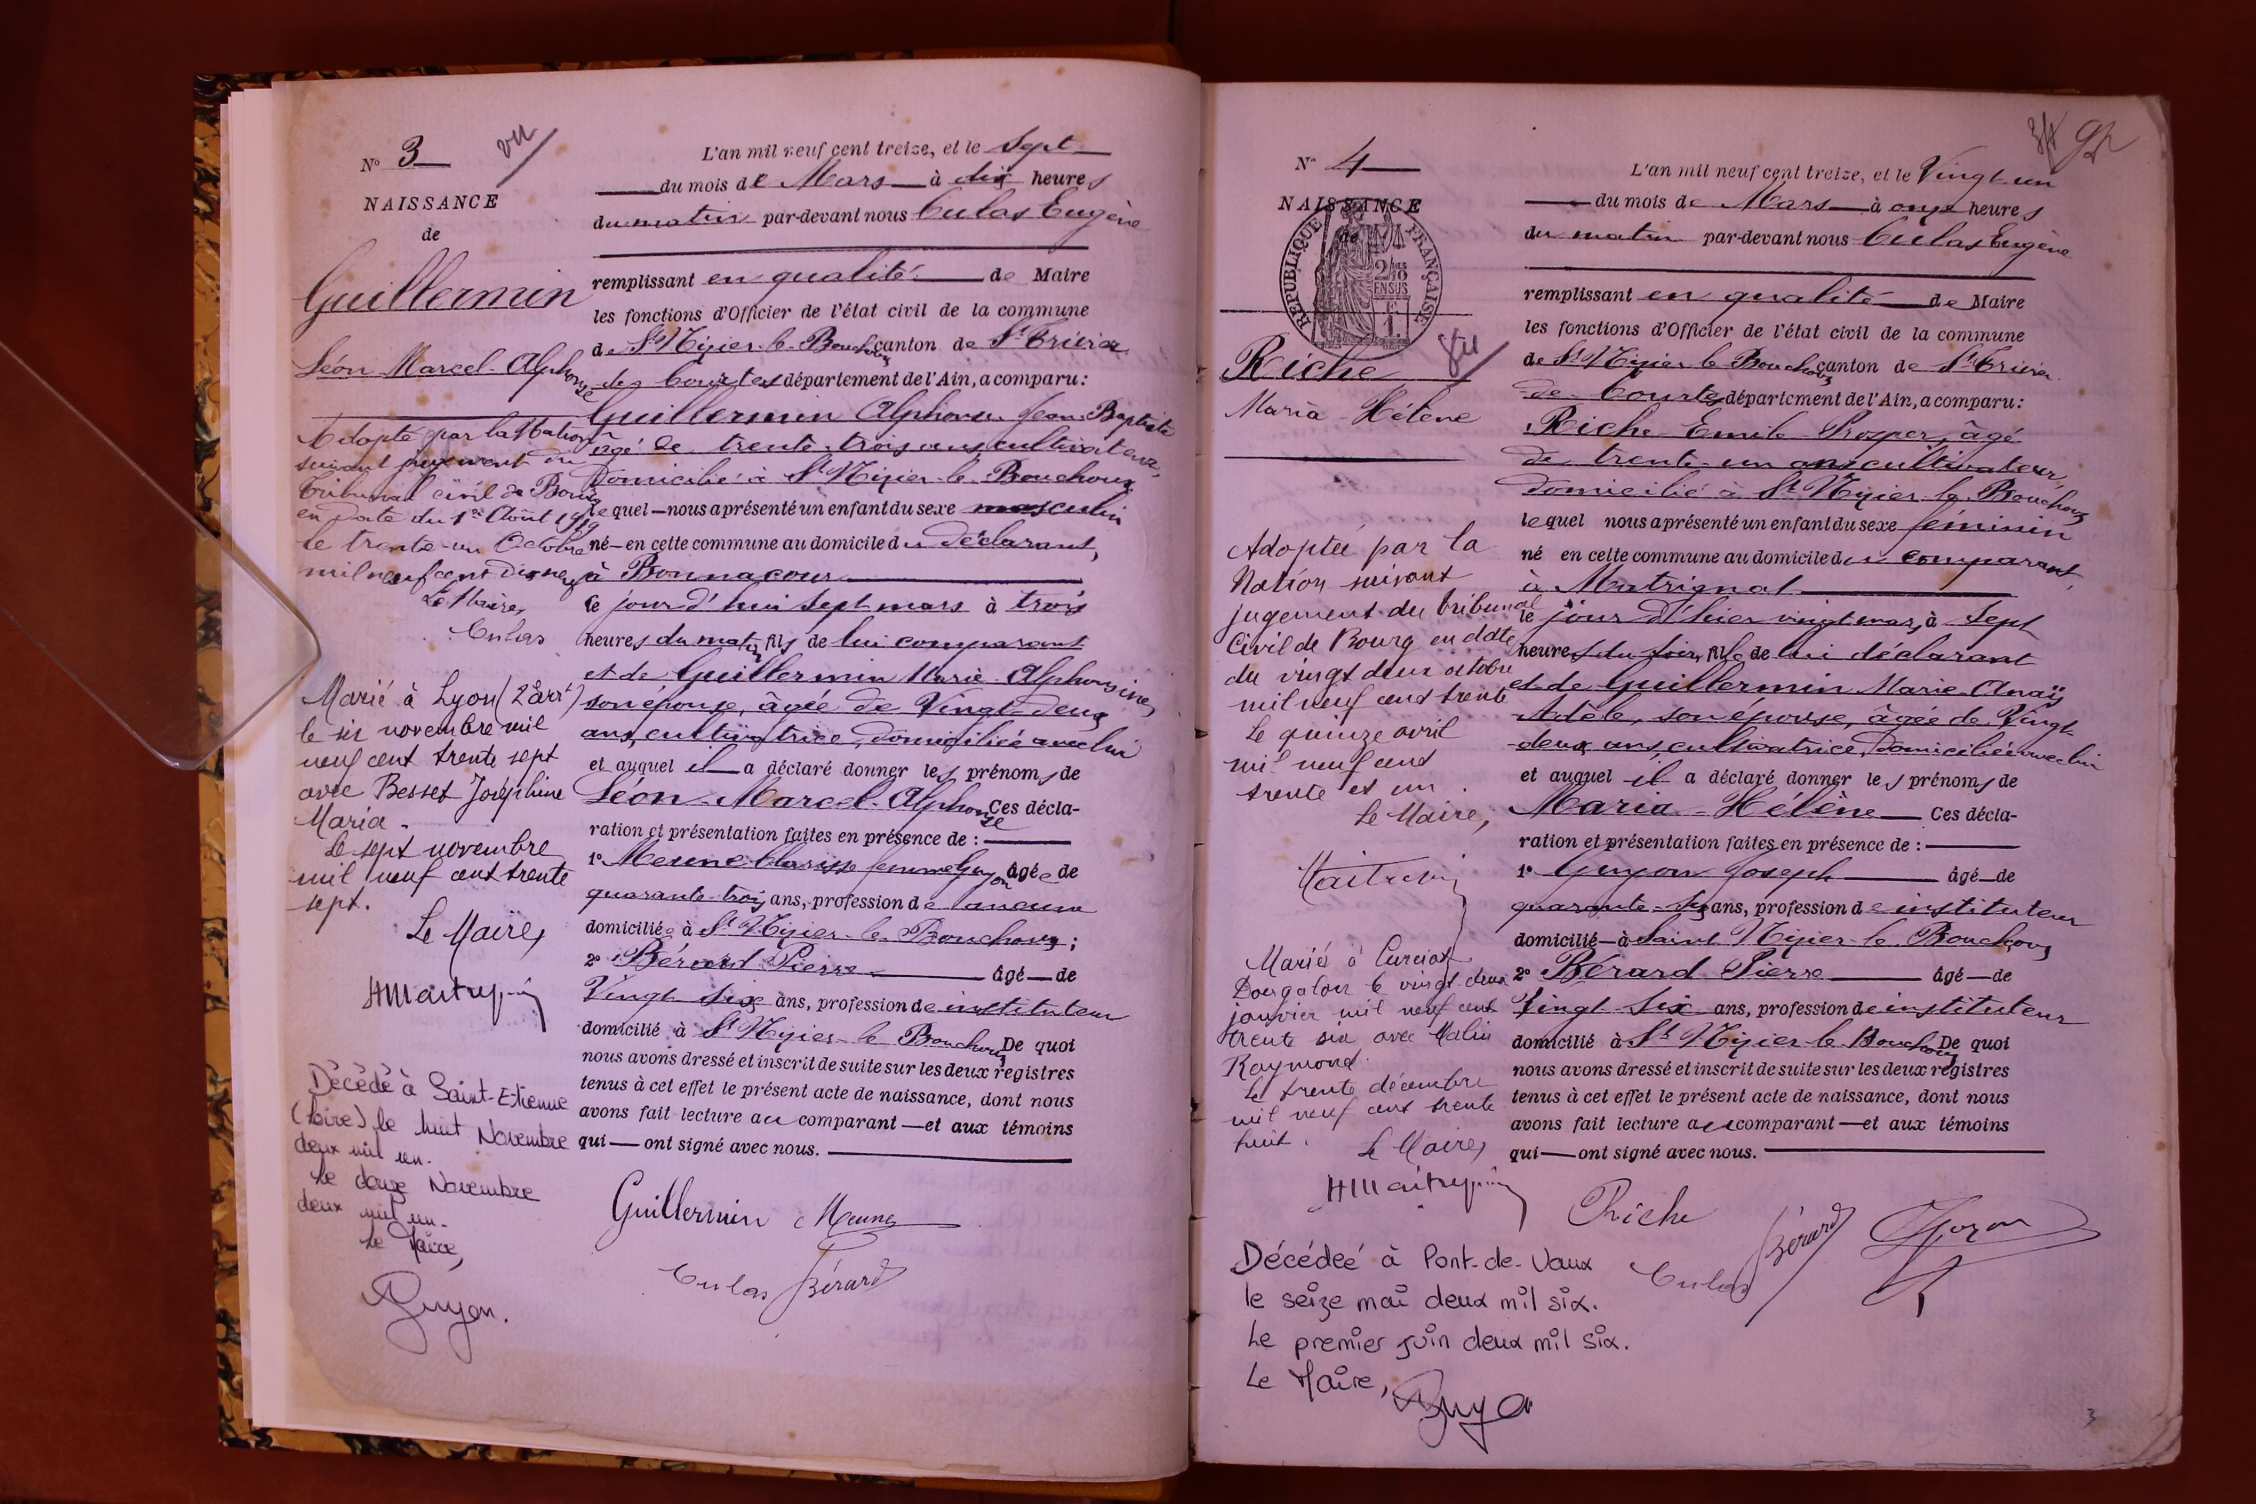 N° 3
vu
NAISSANCE
de
Guillermin
Léon Marcel Alphonse
Adopté par la Nation
suivant jugement du
Tribunal civil de Bourg
en date du 1er Août 1919
le trente-un Octobre
mil neuf cent dix neuf
Le Maire,
Culas
Marié à Lyon (2e arrt)
le six novembre mil
neuf cent trente sept
avec Besset Joséphine
Maria.
Le sept novembre
mil neuf cent trente
sept.
Le Maire,
Décédé à Saint-Etienne
(Loire) le huit Novembre
deux mil un.
Le douze Novembre
deux mil un.
Le Maire,
Guyon.
L'an mil neuf cent treize, et le sept
du mois de Mars à dix heures
du matin par-devant nous Culas Eugène
remplissant en qualité de Maire
les fonctions d'Officier de l'état civil de la commune
de St Nizier-le-Bouchoux canton de St Trivier
de Courtes département de l'Ain, a comparu :
Guillermin Alphonse Jean-Baptiste
âgé de trente-trois ans cultivateur,
domicilié à St Nizier-le-Bouchoux
lequel nous a présenté un enfant du sexe masculin
né en cette commune au domicile du déclarant,
à Bonnacour
le jour d'hui sept mars à trois
heures du matin fils de lui comparant
et de Guillermin Marie Alphonsine,
son épouse, âgée de Vingt-deux
ans, cultivatrice, domiciliée avec lui
et auquel il a déclaré donner les prénoms de
Léon-Marcel-Alphonse Ces décla-
ration et présentation faites en présence de :
1° Meune Clarisse femme Guyon âgée de
quarante-trois ans, profession de aucune
domiciliée à St Nizier-le-Bouchoux ;
2° Bérard Pierre âgé de
Vingt six ans, profession de instituteur
domicilié à St Nizier-le-Bouchoux De quoi
nous avons dressé et inscrit de suite sur les deux registres
tenus à cet effet le présent acte de naissance, dont nous
avons fait lecture au comparant et aux témoins
qui ont signé avec nous.
Guillermin Meune
Culas Bérard
N° 4
NAISSANCE
de
RÉPUBLIQUE FRANÇAISE
Riche
vu
Maria Hélène
Adoptée par la
Nation suivant
jugement du tribunal
Civil de Bourg en date
du vingt deux octobre
mil neuf cent trente
Le quinze avril
mil neuf cent
trente et un.
Le Maire,
Mariée à Curciat
Dongalon le vingt-deux
janvier mil neuf cent
trente six avec Malin
Raymond.
Le trente décembre
mil neuf cent trente
huit.
Le Maire,
Décédeé à Pont-de-Vaux
le seize mai deux mil six.
Le premier juin deux mil six.
Le Maire,
L'an mil neuf cent treize, et le Vingt-un
du mois de Mars à onze heures
du matin par-devant nous Culas Eugène
remplissant en qualité de Maire
les fonctions d'Officier de l'état civil de la commune
de St Nizier le Bouchoux canton de St Trivier
de Courtes département de l'Ain, a comparu :
Riche Emile Prosper, âgé
de trente-un ans cultivateur,
domicilié à St Nizier-le-Bouchoux
lequel nous a présenté un enfant du sexe féminin
né en cette commune au domicile du comparant,
à Montrignat
le jour d'hier vingt mars, à sept
heures du soir, fille de lui déclarant
et de Guillermin Marie Anaïs
Adèle, son épouse, âgée de Vingt-
deux ans, cultivatrice, domiciliée avec lui
et auquel il a déclaré donner les prénoms de
Maria-Hélène Ces décla-
ration et présentation faites en présence de :
1° Guyon Joseph âgé de
quarante-six ans, profession de instituteur
domicilié à Saint Nizier-le-Bouchoux
2° Bérard Pierre âgé de
Vingt Six ans, profession de instituteur
domicilié à St Nizier le Bouchoux De quoi
nous avons dressé et inscrit de suite sur les deux registres
tenus à cet effet le présent acte de naissance, dont nous
avons fait lecture au comparant et aux témoins
qui ont signé avec nous.
Riche
Culas Bérard Guyon
3